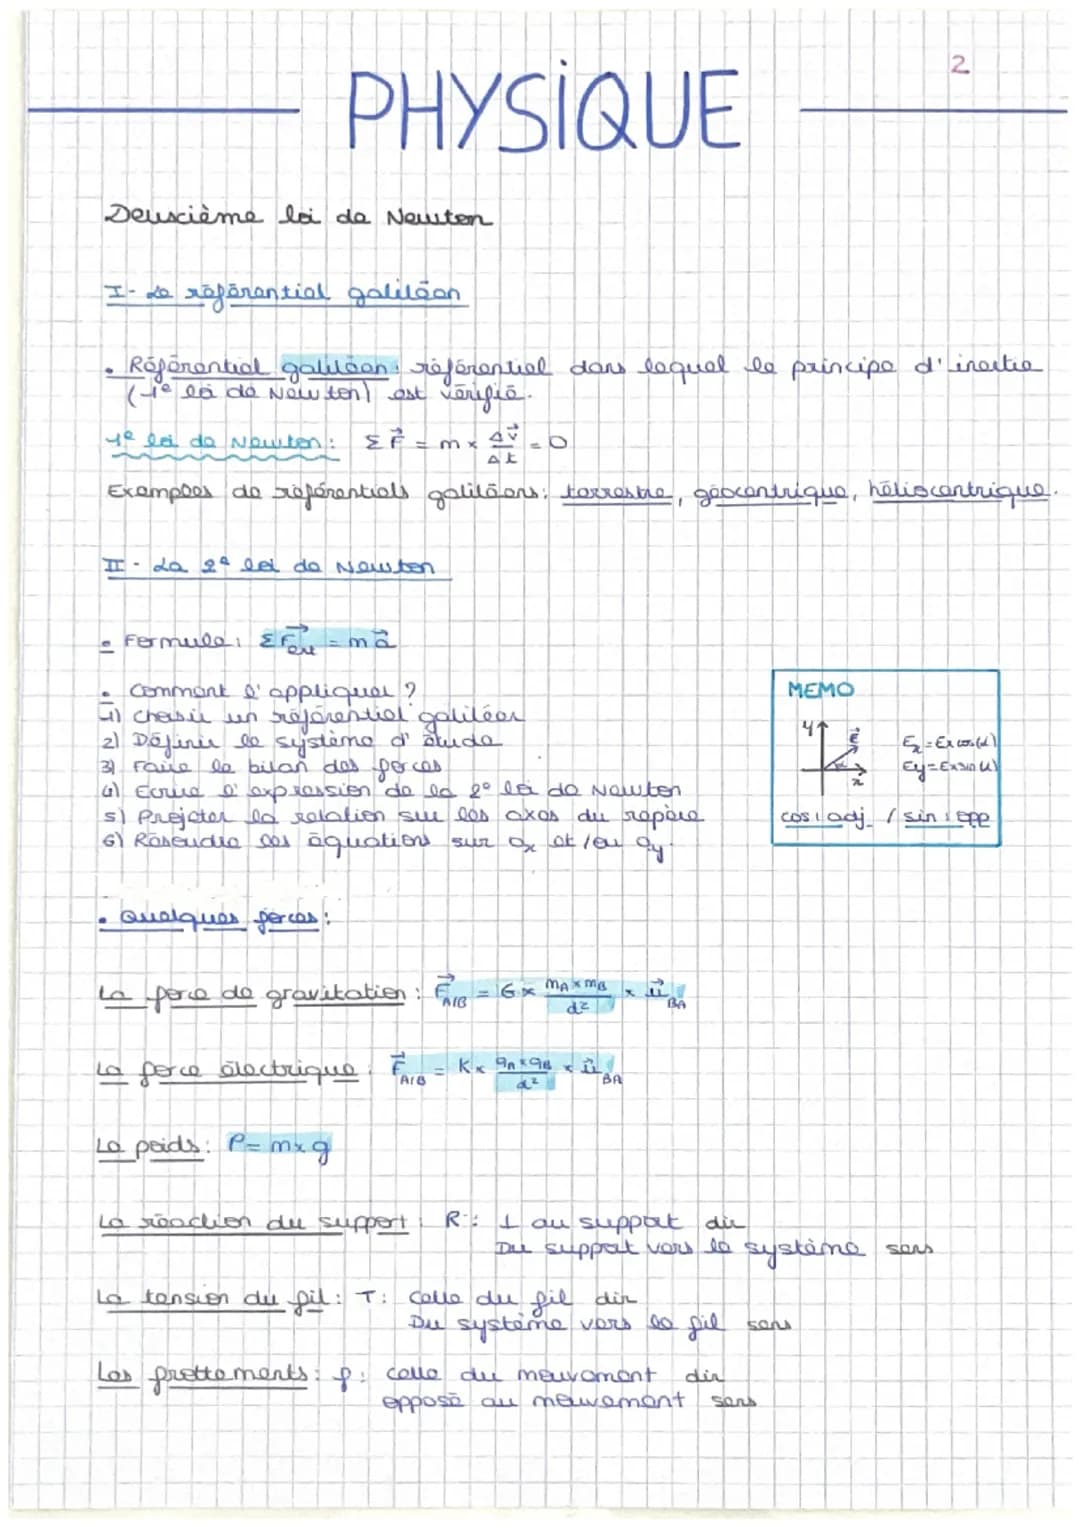 2
PHYSIQUE
Deuxième loi de Newton
I- Le référentiel galiléen
• Référentiel galiléen: référentiel dans lequel le principe d'inertie
(1e loi de Newton) est vérifié.
1e loi de Newton: Σ F⃗ = m × Δv⃗/Δt = 0
Exemples de référentiels galiléens: terrestre, géocentrique, héliocentrique.
II - La 2e loi de Newton
• Formule: Σ F⃗ext = m a⃗
• Comment l'appliquer ?
1) Choisir un référentiel galiléen
2) Définir le système d'étude
3) Faire le bilan des forces
4) Ecrire l'expression de la 2e loi de Newton
5) Projeter la relation sur les axes du repère
6) Résoudre les équations sur Ox et/ou Oy.
MEMO
y
E⃗
α
x
Ex = E×cos(α)
Ey = E×sin(α)
cos: adj / sin: opp
• Quelques forces:
La force de gravitation: F⃗A/B = G × mA × mB / d² × u⃗BA
La force électrique: F⃗A/B = K × qA × qB / d² × u⃗BA
Le poids: P = m × g
La réaction du support: R: ⊥ au support dir
Du support vers le système sens
La tension du fil: T: celle du fil dir
Du système vers le fil sens
Les frottements: f: celle du mouvement dir
opposé au mouvement sens